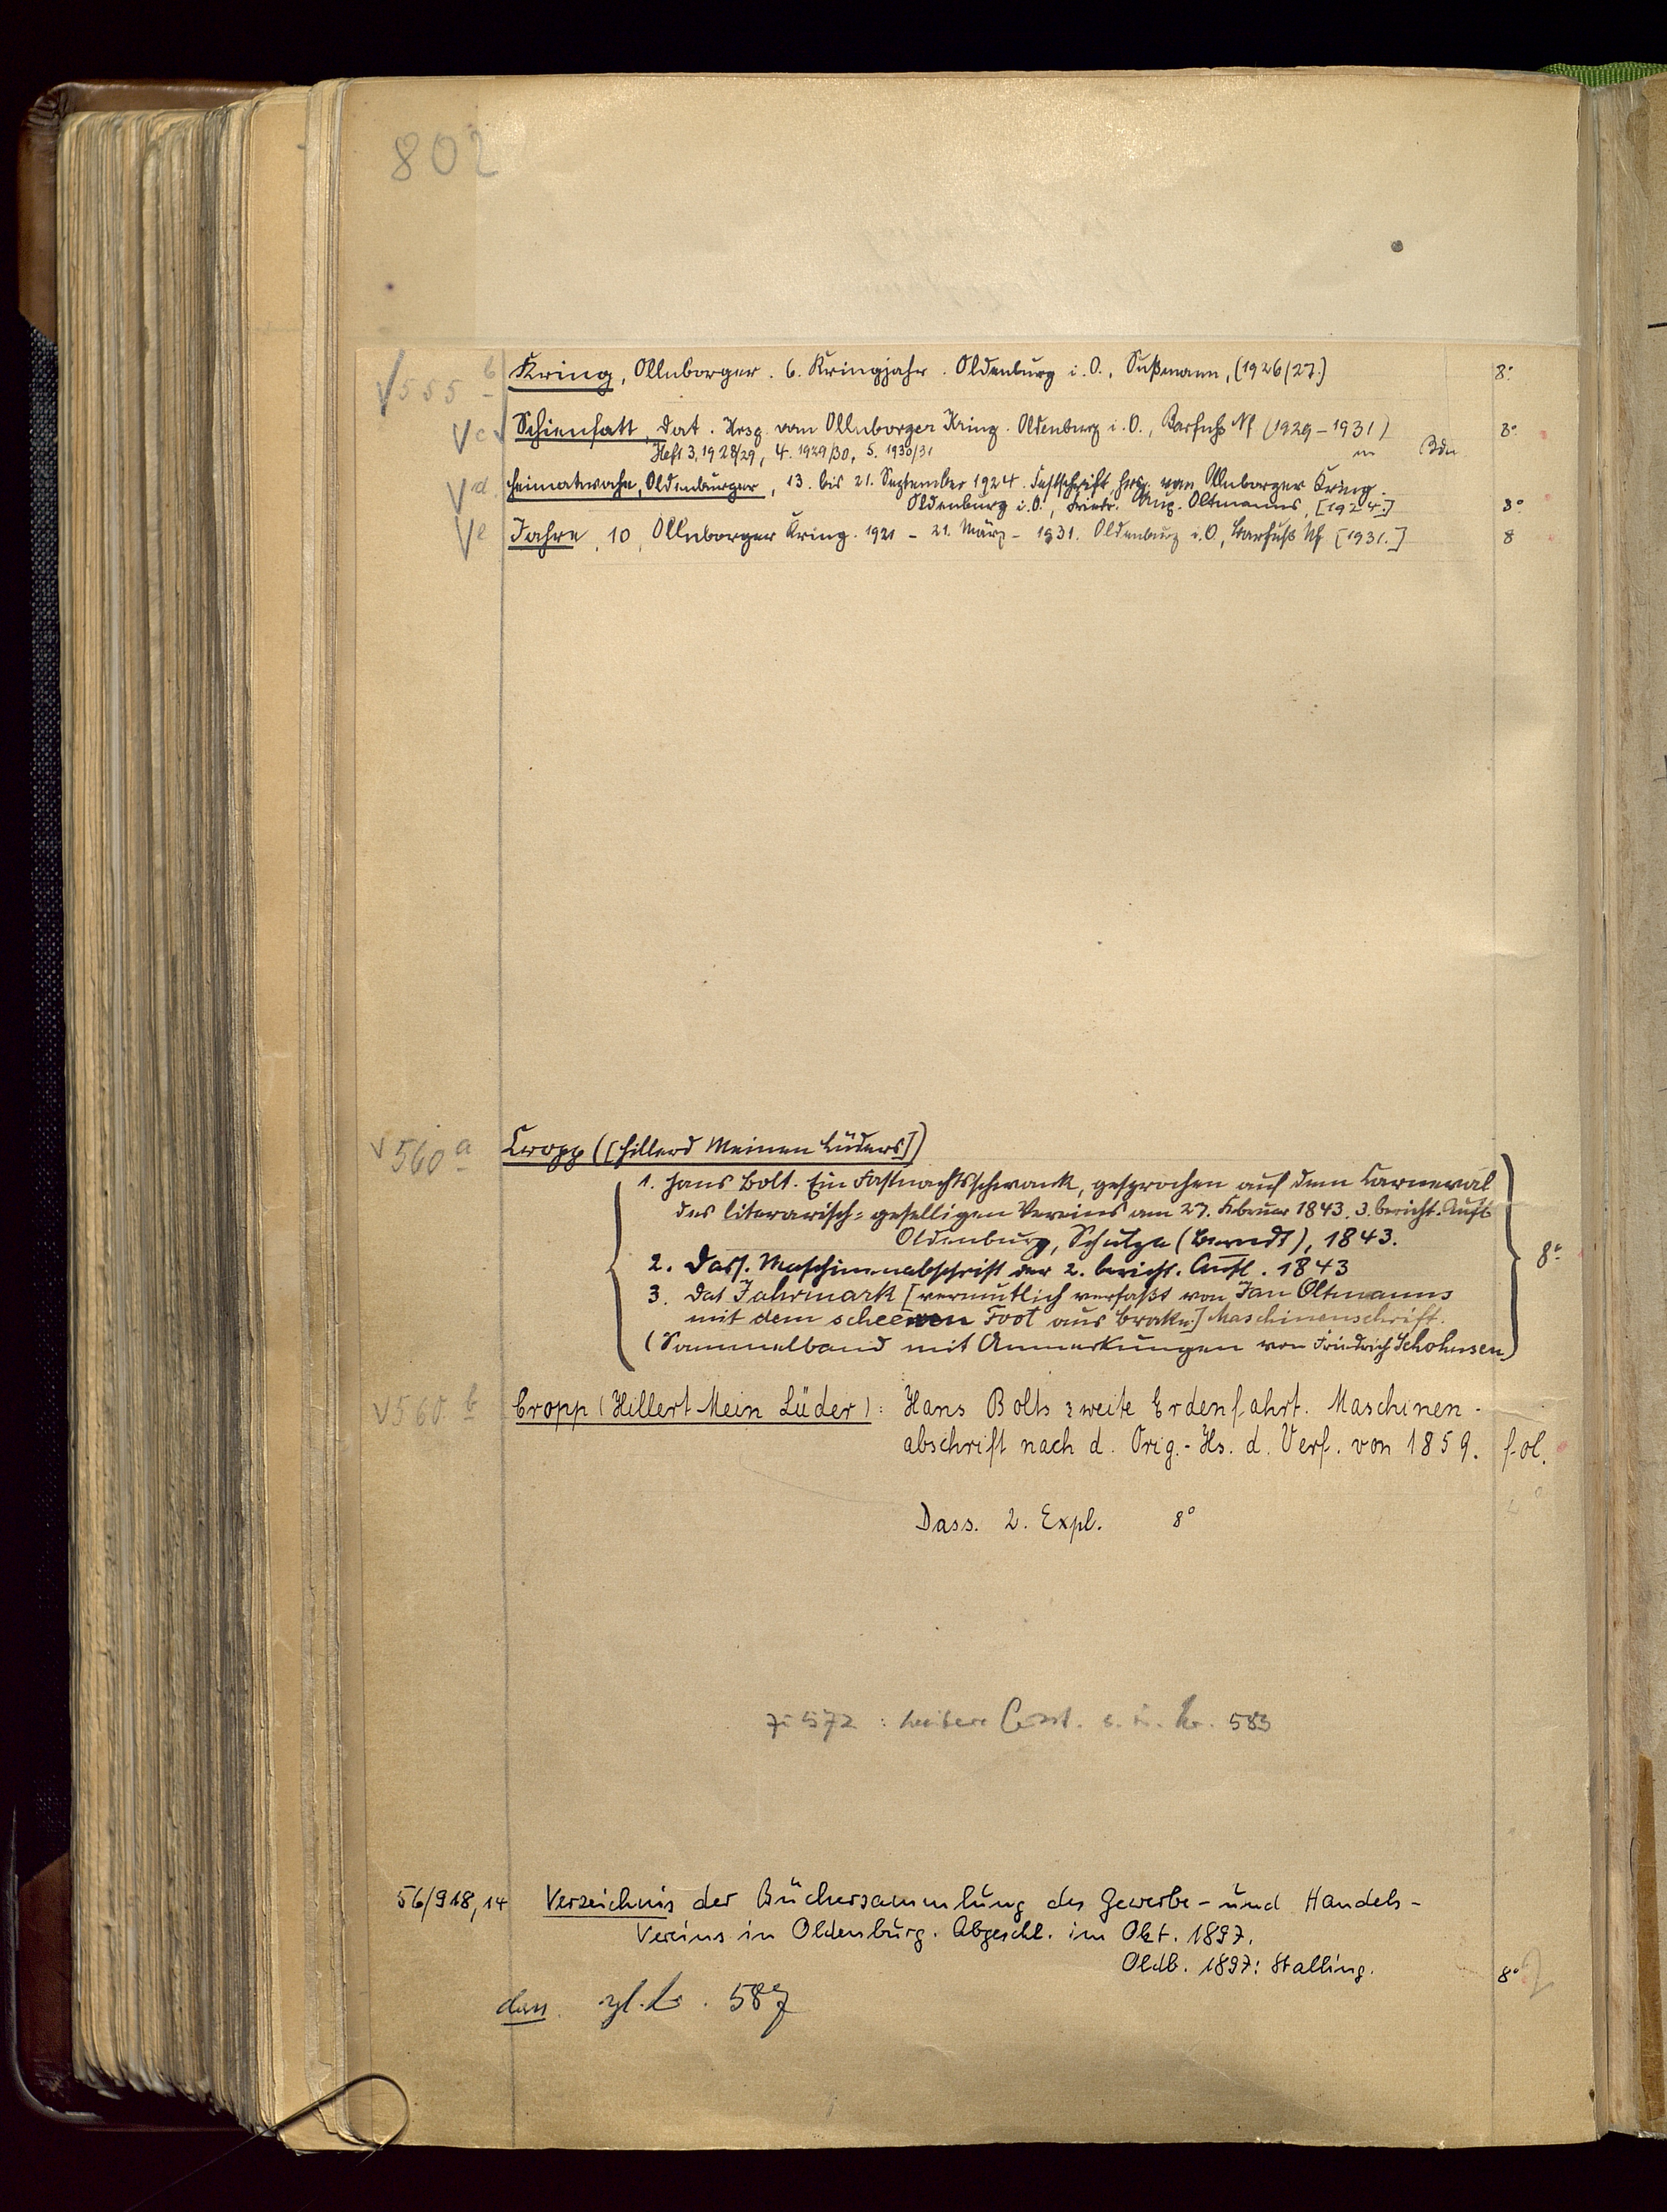 802
√555 b Kring, Ollnborger. 6. Kringjahr. Oldenburg i. O., Sußmann, (1926/27.) 8°
√c Schienfatt, Dat. Hrsg. vom Ollnborger Kring. Oldenburg i. O., Barfuß Nf (1929-1931) 8°
Heft 3, 1928/29, 4. 1929/30, 5. 1930/31 in Bdn
√d Heimatwoche, Oldenburger, 13. bis 21. September 1924. Festschrift hrsg. vom Ollnborger Kring.
Oldenburg i. O., Friedr. Aug. Oltmanns, [1924.] 8°
√e Jahre, 10, Ollnborger Kring. 1921 - 21. März - 1931. Oldenburg i. O, Barfuß Nf. [1931.] 8
√560 a Cropp ([Hillerd Meinen Lüders])
1. Hans Bolt. Ein Fastnachtsschwank, gesprochen auf dem Carneval
des literarisch-geselligen Vereins am 27. Februar 1843. 3. bericht. Aufl.
Oldenburg, Schulze (Berndt), 1843.
2. Dass. Maschinenabschrift der 2. bericht. Aufl. 1843 8°
3. Dat Jahrmark [vermutlich verfaßt von Jan Oltmanns
mit dem scheewen Foot aus Brake.] Maschinenschrift.
(Sammelband mit Anmerkungen von Friedrich Schohusen)
√560 b Cropp (Hillert Mein Lüder): Hans Bolts zweite Erdenfahrt. Maschinen-
abschrift nach d. Orig.-Hs. d. Verf. von 1859. fol.
Dass. 2. Expl. 8°
572 : 583
56/918,14 Verzeichnis der Büchersammlung des Gewerbe- und Handels-
Vereins in Oldenburg. Abgeschl. im Okt. 1897.
Oldb. 1897: Stalling. 8°
587